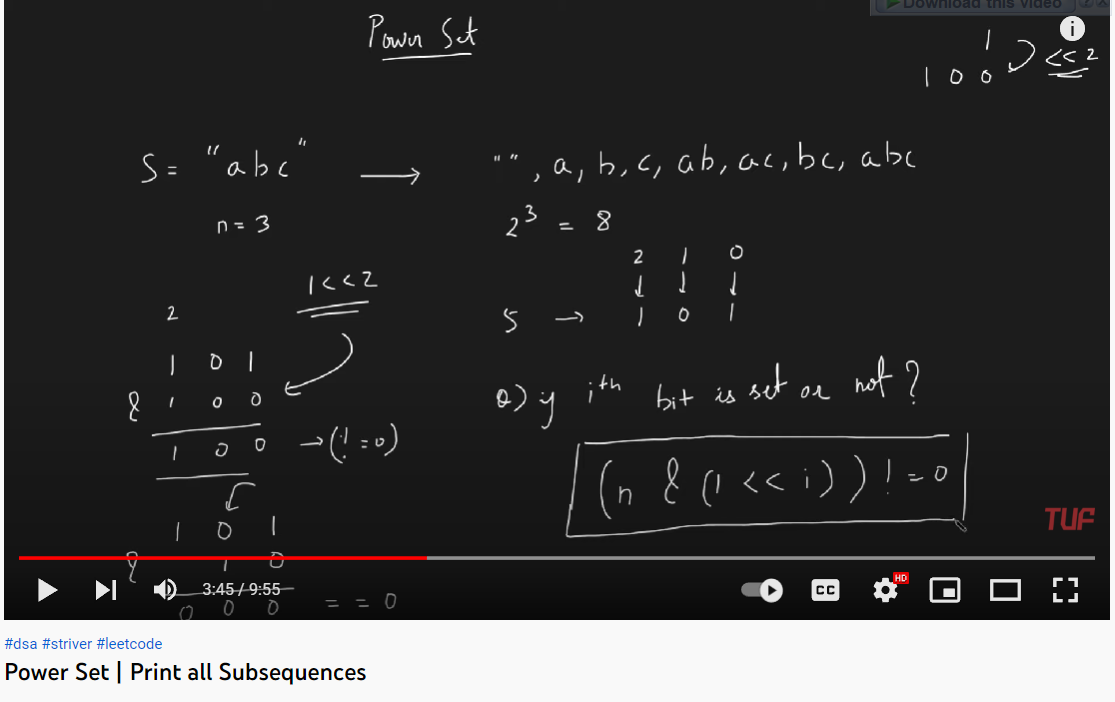 Download this video
Power Set
1
1 0 0 << 2
S = "abc" → "", a, b, c, ab, ac, bc, abc
n = 3
2^3 = 8
2 1 0
↓ ↓ ↓
5 → 1 0 1
1<<2
2
1 0 1
& 1 0 0
1 0 0 → (! = 0)
1 0 1
& 1 0
0 0 0 = = 0
Q) if ith bit is set or not?
(n & (1 << i)) != 0
TUF
3:45 / 9:55
CC
HD
#dsa #striver #leetcode
Power Set | Print all Subsequences